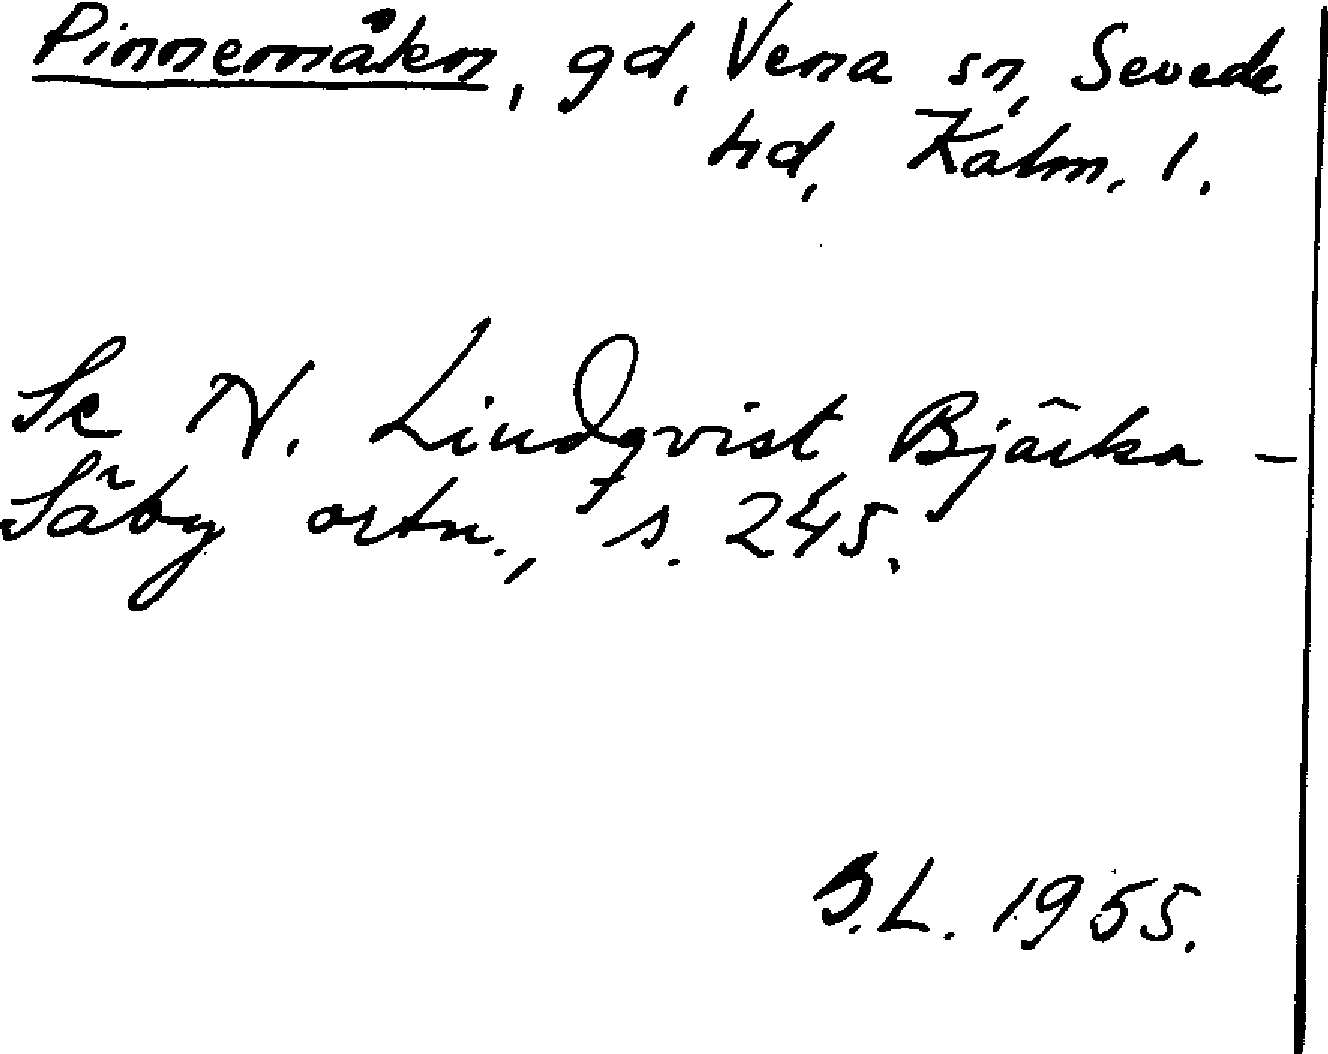 Pinnemålen, gd, Vena sn, Sevede
hd, Kalm. l.
Se N. Lindqvist Bjärka -
Säby ortn., s. 245.
S.L. 1955.